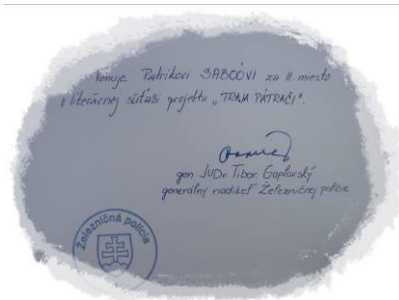 Venuje Patrikovi SABOÓVI za II. miesto
v literárnej súťaži projektu „TRAJA PÁTRAČI“.
gen. JUDr. Tibor Gaplovský
generálny riaditeľ Železničnej polície
Železničná polícia